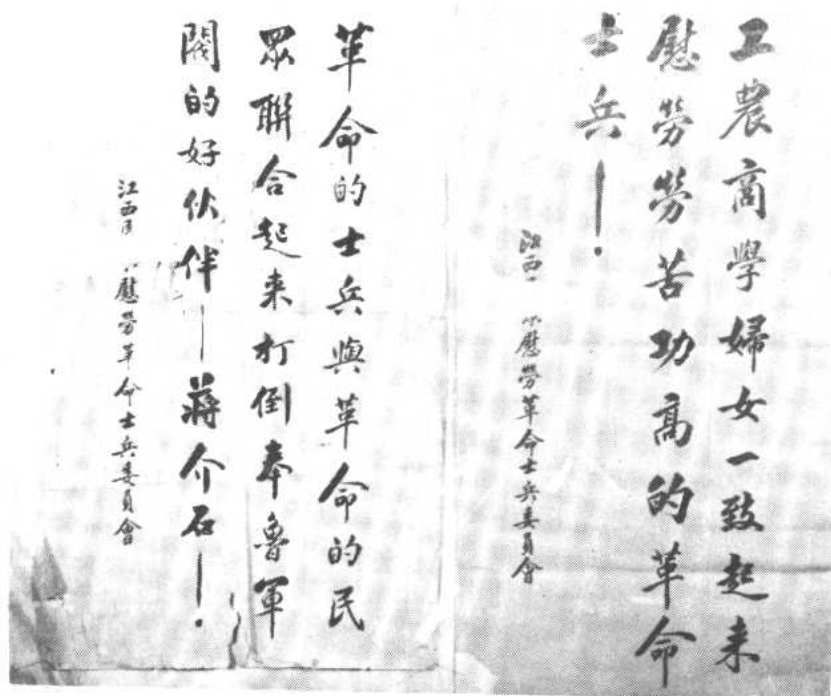 工農商學婦女一致起来
慰勞勞苦功高的革命
士兵！
江西 慰勞革命士兵委員會
革命的士兵與革命的民
眾聯合起来打倒奉魯軍
閥的好伙伴—蔣介石—！
江西 慰勞革命士兵委員會